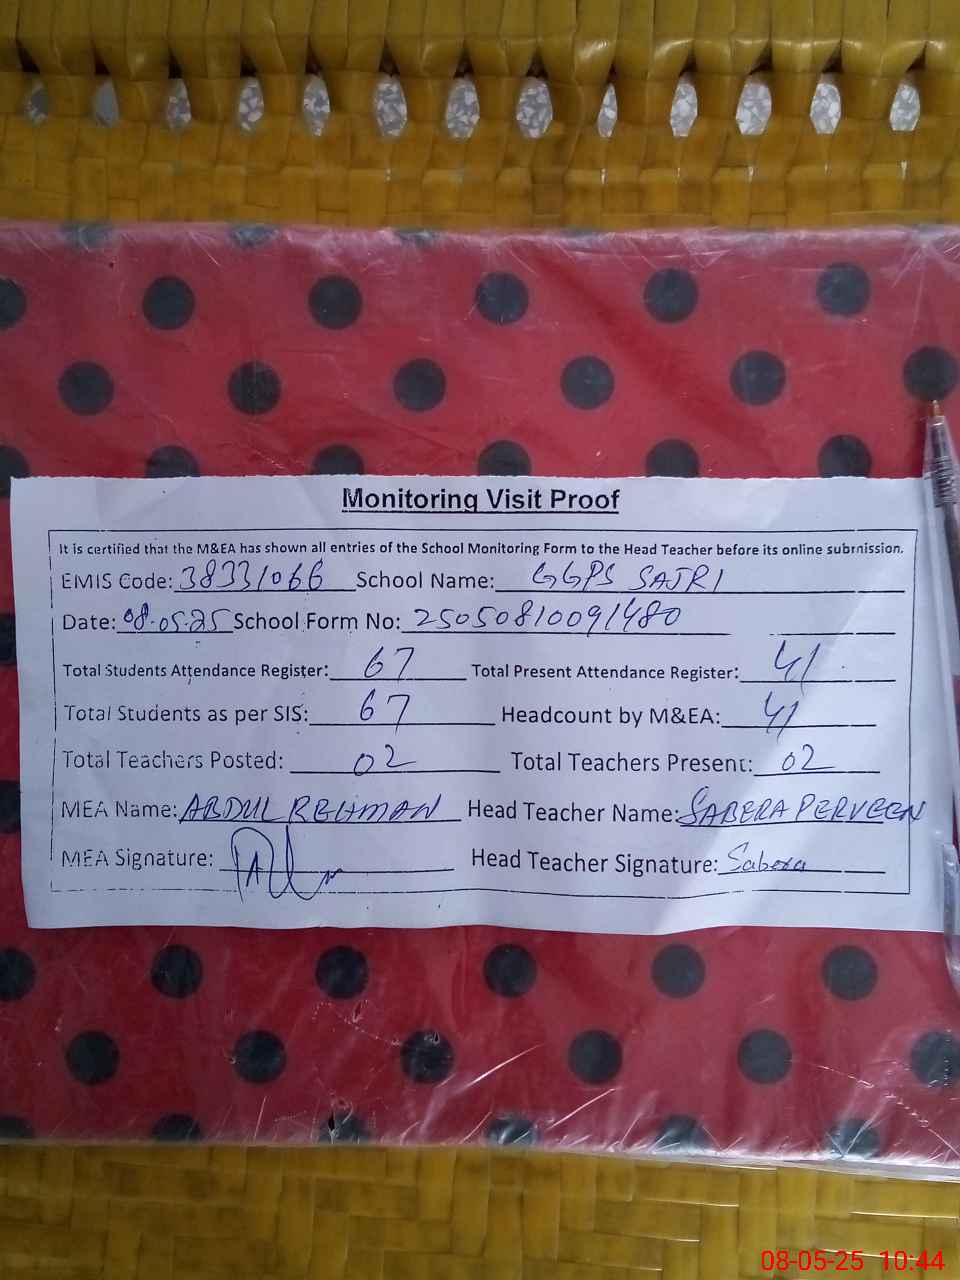 Monitoring Visit Proof
It is certified that the M&EA has shown all entries of the School Monitoring Form to the Head Teacher before its online submission.
EMIS Code: 38331066 School Name: GGPS SAJRI
Date: 08-05-25 School Form No: 25050810091480
Total Students Attendance Register: 67 Total Present Attendance Register: 41
Total Students as per SIS: 67 Headcount by M&EA: 41
Total Teachers Posted: 02 Total Teachers Present: 02
MEA Name: ABDUL REHMAN Head Teacher Name: SABERA PERVEEN
MEA Signature: Head Teacher Signature: Sabera
08-05-25 10:44